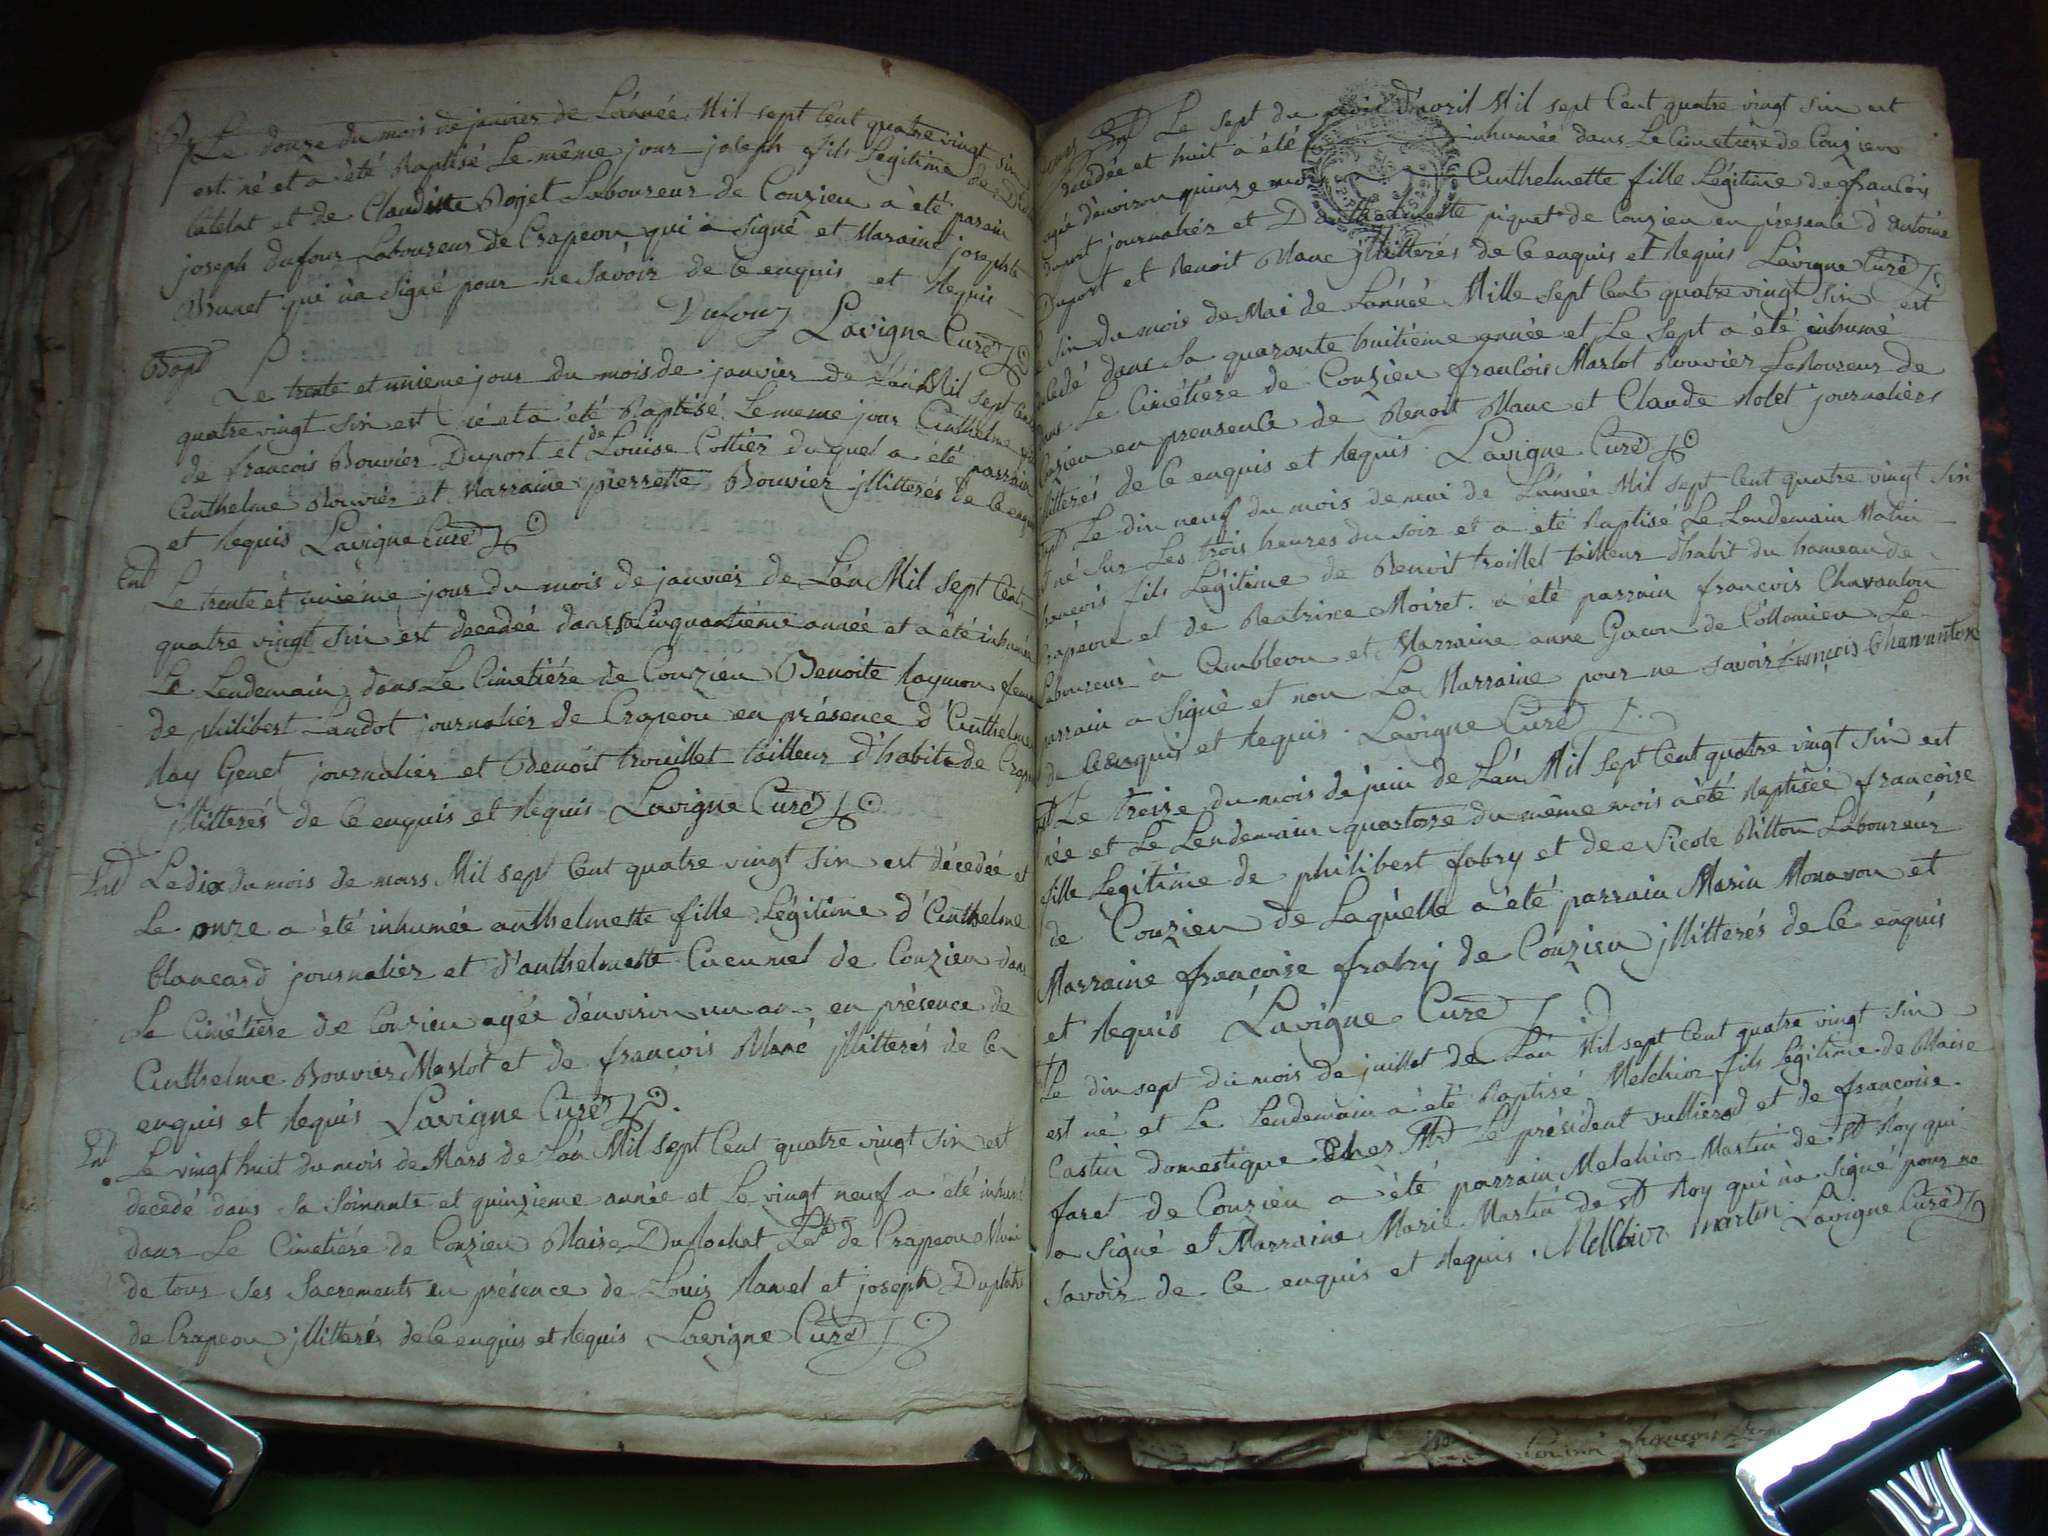 Le douze du mois de janvier de L'année Mil sept Cent quatre vingt six
est né et à été Baptisé Le même jour joseph fils Legitime de
Catelat et de Claudine Rojet Laboureur de Conzieu a été parain
joseph dufour Laboureur de Crapeou qui a signé et Maraine josephte
Brunet qui n'a signé pour ne savoir de ce enquis et Requis
Dufour Lavigne Curé
Bapt Le trente et unieme jour du mois de janvier de L'an Mil sept Cent
quatre vingt six est né et a été Baptisé Le meme jour Anthelme fils
de francois Bouvier Duport et de Louise Cottier duquel a été parrain
Anthelme Bouvier et Marraine pierrette Bouvier jllitterés de ce enquis
et Requis Lavigne Curé
Ent
Le trente et unième jour du mois de janvier de L'an Mil sept Cent
quatre vingt six est decedée dans sa Cinquantième année et a été inhumée
Le Lendemain dans Le Cimetiére de Conzieu Benoite Raymon feme
de philibert Landot journalier de Crapeou en présence d'Anthelme
Ray Genet journalier et Benoit trouillet tailleur d'habits de Crapeou
jllitterés de ce enquis et Requis Lavigne Curé
Ent Le dix du mois de mars Mil sept Cent quatre vingt six est décedée et
Le onze a été inhumée anthelmette fille Légitime d'Anthelme
blancard journalier et d'anthelmette Cucurnel de Conzieu dans
Le Cimétiere de Conzieu agée d'environ un an, en présence de
Anthelme Bouvier Marlot et de françois Mané jllitterés de ce
enquis et Requis Lavigne Curé
Ent Le vingt huit du mois de Mars de L'an Mil sept Cent quatre vingt six est
decedé dans sa soixante et quinzieme année et Le vingt neuf a été inhumé
dans Le Cimetiére de Conzieu Blaise Duflochat Lb de Crapeou Muni
de tous ses sacrements en présence de Louis Ramel et joseph Duplatre
de Crapeou jllitterés de ce enquis et Requis Lavigne Curé
Le sept du mois d'avril Mil sept Cent quatre vingt six est
decedée et huit a été inhumée dans Le Cimetiere de Conzieu
agée d'environ quinze mois Anthelmette fille Légitime de francois
duport journalier et D'anthelmette piquet de Conzieu en présence d'Antoine
Duport et Benoit Manc jllitterés de ce enquis et Requis Lavigne Curé
Le six du mois de Mai de L'année Mille sept Cent quatre vingt six est
decedé dans sa quarante huitiéme année et Le sept a été inhumé
dans Le Cimétiére de Conzieu francois Marlot Bouvier Laboureur de
Conzieu en presence de Benoit Manc et Claude Rolet journaliers
jllitterés de ce enquis et Requis Lavigne Curé
Bapt Le dix neuf du mois de mai de L'année Mil sept Cent quatre vingt six
est né sur Les trois heures du soir et a été Baptisé Le Lendemain Matin
francois fils Légitime de Benoit troillet tailleur d'habit du hameau de
Crapeou et de Beatrixe Moiret. a été parrain francois Chavanton
Laboureur à Ambleon et Marraine anne Gacon de Collomieu Le
parrain a Signé et non La Marraine pour ne savoir françois Chavanton
de ce enquis et Requis. Lavigne Curé
Bapt Le treize du mois de juin de L'an Mil sept Cent quatre vingt six est
née et Le Lendemain quatorze du même mois a été Baptisée francoise
fille Legitime de philibert fabry et de Nicole Billon Laboureur
de Conzieu de Laquelle a été parrain Marin Monavon et
Marraine françoise frabry de Conzieu jllitterés de ce enquis
et Requis Lavigne Curé
Bt
Le dix sept du mois de juillet de L'an Mil sept Cent quatre vingt six
est né et Le Lendemain a été Baptisé Melchior fils Légitime de Blaise
Castin domestique Chez Mr Le président vullierod et de francoise
faret de Conzieu a été parrain Melchior Martin de St Roy qui
a signé et Marraine Marie Martin de St Roy qui n'a signé pour ne
savoir de ce enquis et Requis. Melchior martin Lavigne Curé